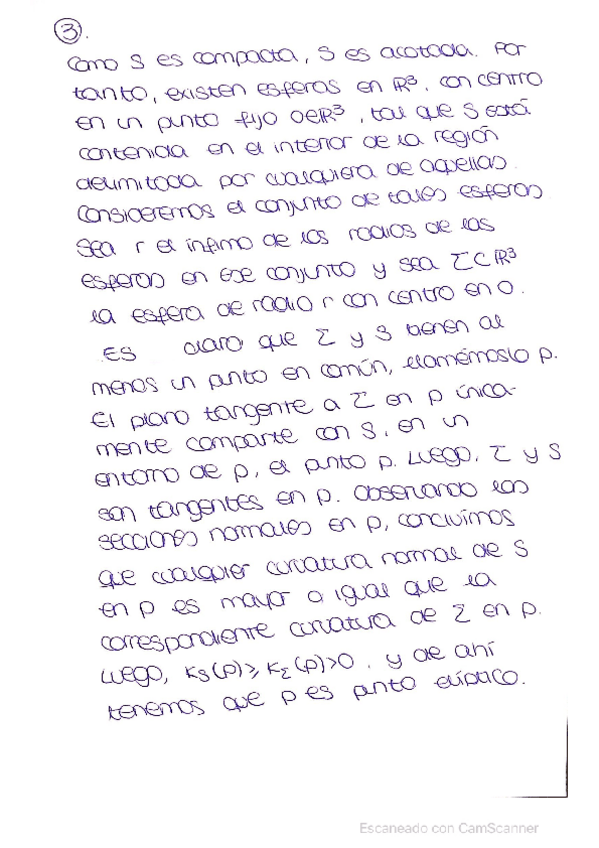 3.
Como S es compacta, S es acotada. Por
tanto, existen esferas en ℝ³, con centro
en un punto fijo O∈ℝ³, tal que S está
contenida en el interior de la región
delimitada por cualquiera de aquellas.
Consideremos el conjunto de tales esferas
Sea r el ínfimo de los radios de las
esferas en ese conjunto y sea Σ⊂ℝ³
la esfera de radio r con centro en O.
Es claro que Σ y S tienen al
menos un punto en común, llamémoslo p.
El plano tangente a Σ en p única-
mente comparte con S, en un
entorno de p, el punto p. Luego, Σ y S
son tangentes en p. Observando las
secciones normales en p, concluimos
que cualquier curvatura normal de S
en p es mayor o igual que la
correspondiente curvatura de Σ en p.
Luego, K_S(p) ≥ K_Σ(p) > 0. y de ahí
tenemos que p es punto elíptico.
Escaneado con CamScanner